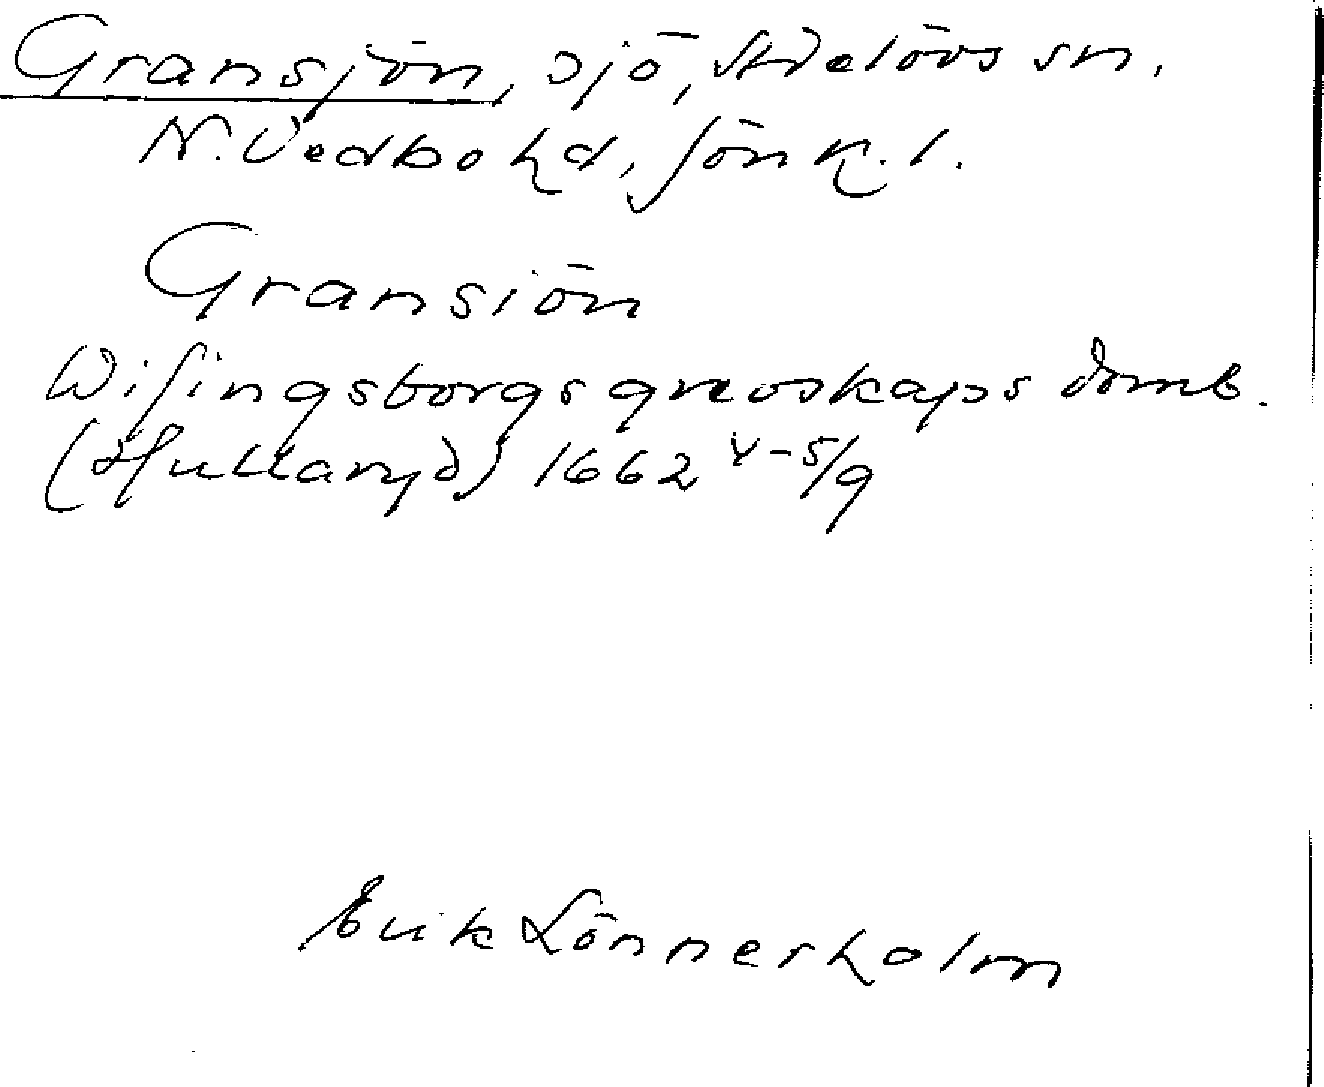 Gransjön, sjö, Adelövs sn.
N. Vedbo hd, Jönk. l.
Gransiön
Wisingsborgs grevskaps domb.
(Hullaryd) 1662 4-5/9
Erik Lönnerholm